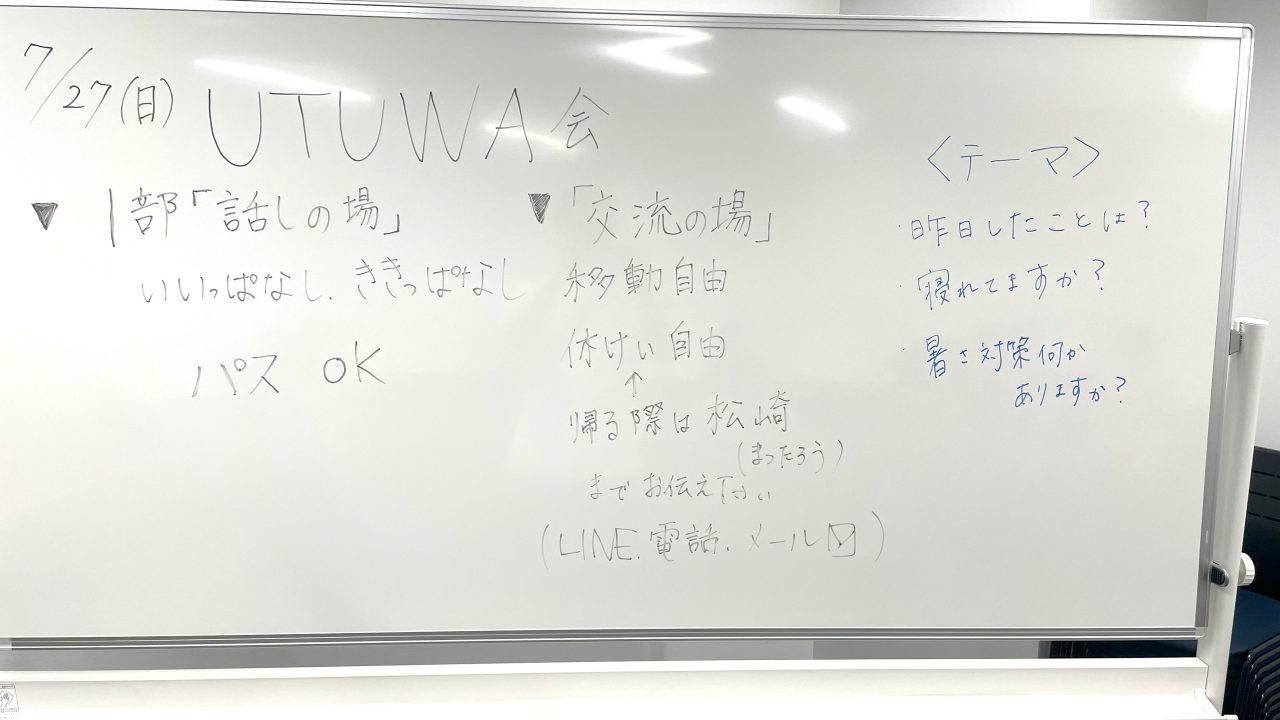 7/27(日) UTUWA会
▼ 1部「話しの場」
いいっぱなし、ききっぱなし
パス OK
▼「交流の場」
移動自由
休けい自由
↑
帰る際は松崎
(まったろう)
までお伝え下さい
(LINE.電話.メール✉)
〈テーマ〉
・昨日したことは?
・寝れてますか?
・暑さ対策何か
ありますか?